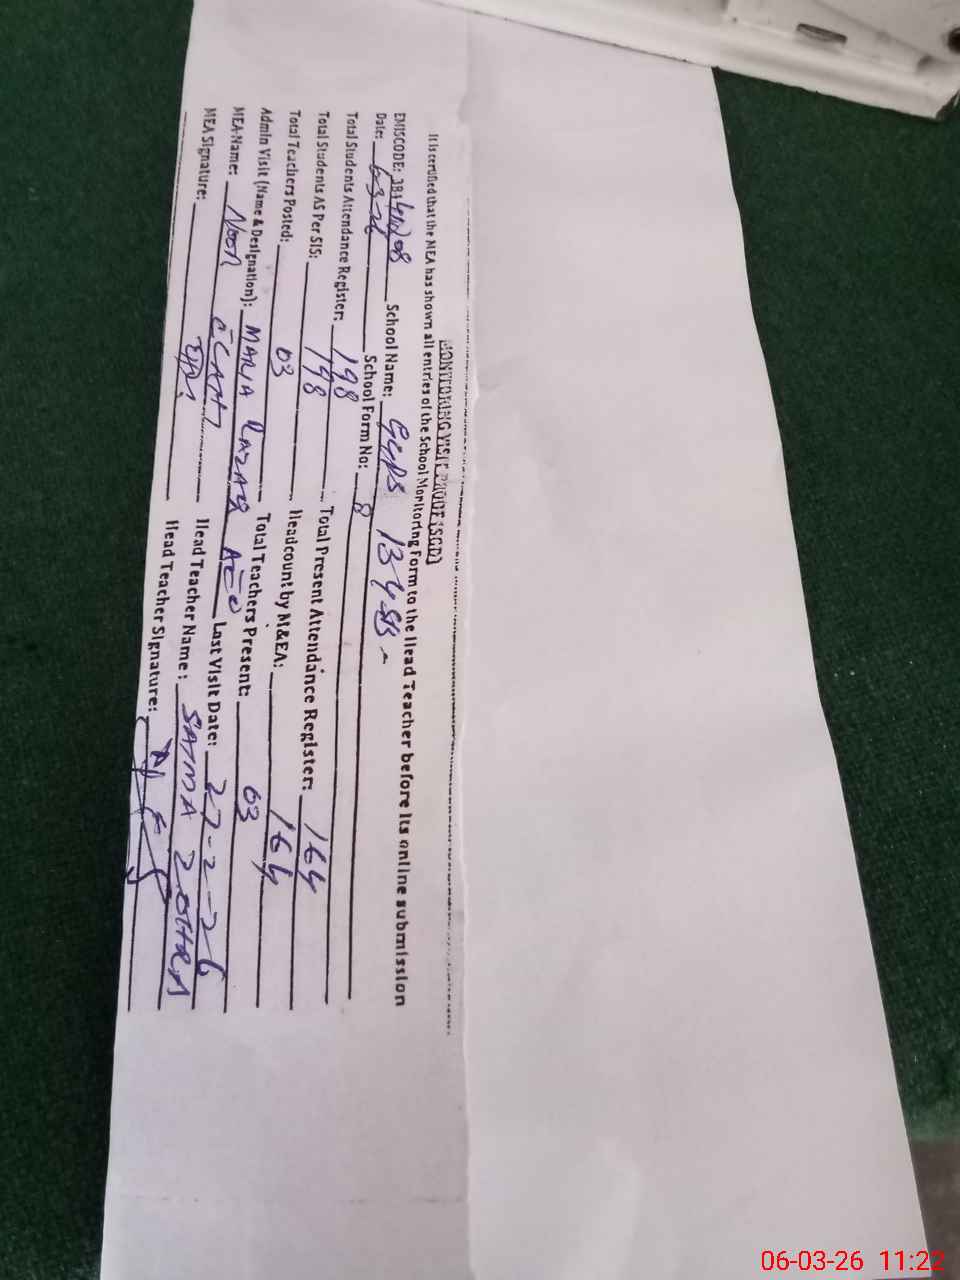 MONITORING VISIT PROOF (SGD)
It is certified that the MEA has shown all entries of the School Monitoring Form to the Head Teacher before its online submission
EMISCODE: School Name: GGPS 134-SB
Date: 6-3-26 School Form No: 8
Total Students Attendance Register: 198 Total Present Attendance Register: 164
Total Students AS Per SIS: 198 Headcount by M&EA: 164
Total Teachers Posted: 03 Total Teachers Present: 03
Admin Visit (Name & Designation): MARIA RAZAQ AEO Last Visit Date: 27-2-26
MEA Name: NOOR Head Teacher Name: SAIMA ZOHRA
MEA Signature: Head Teacher Signature:
06-03-26 11:22